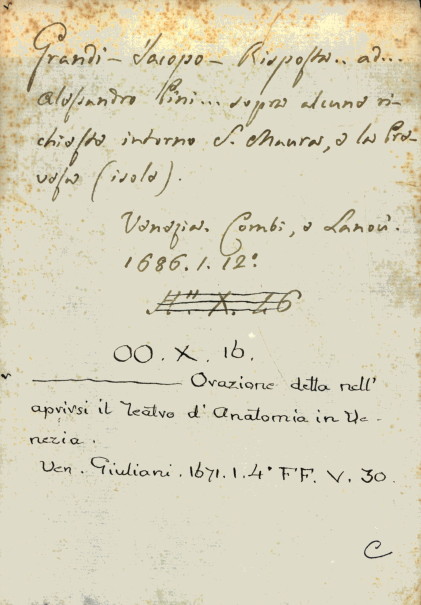 Grandi - Iacopo - Risposta.. ad...
Alessandro Pini... sopra alcune ri-
chieste intorno S. Maura, e la Pre-
vesa (isole).
Venezia. Combi, e Lanoù.
1686. 1. 12°.
H" X. 46
OO. X. 16.
Orazione detta nell'
aprivsi il Teatvo d'Anatomia in Ve-
nezia.
Ven. Giuliani. 1671. 1. 4° FF. V. 30.
C